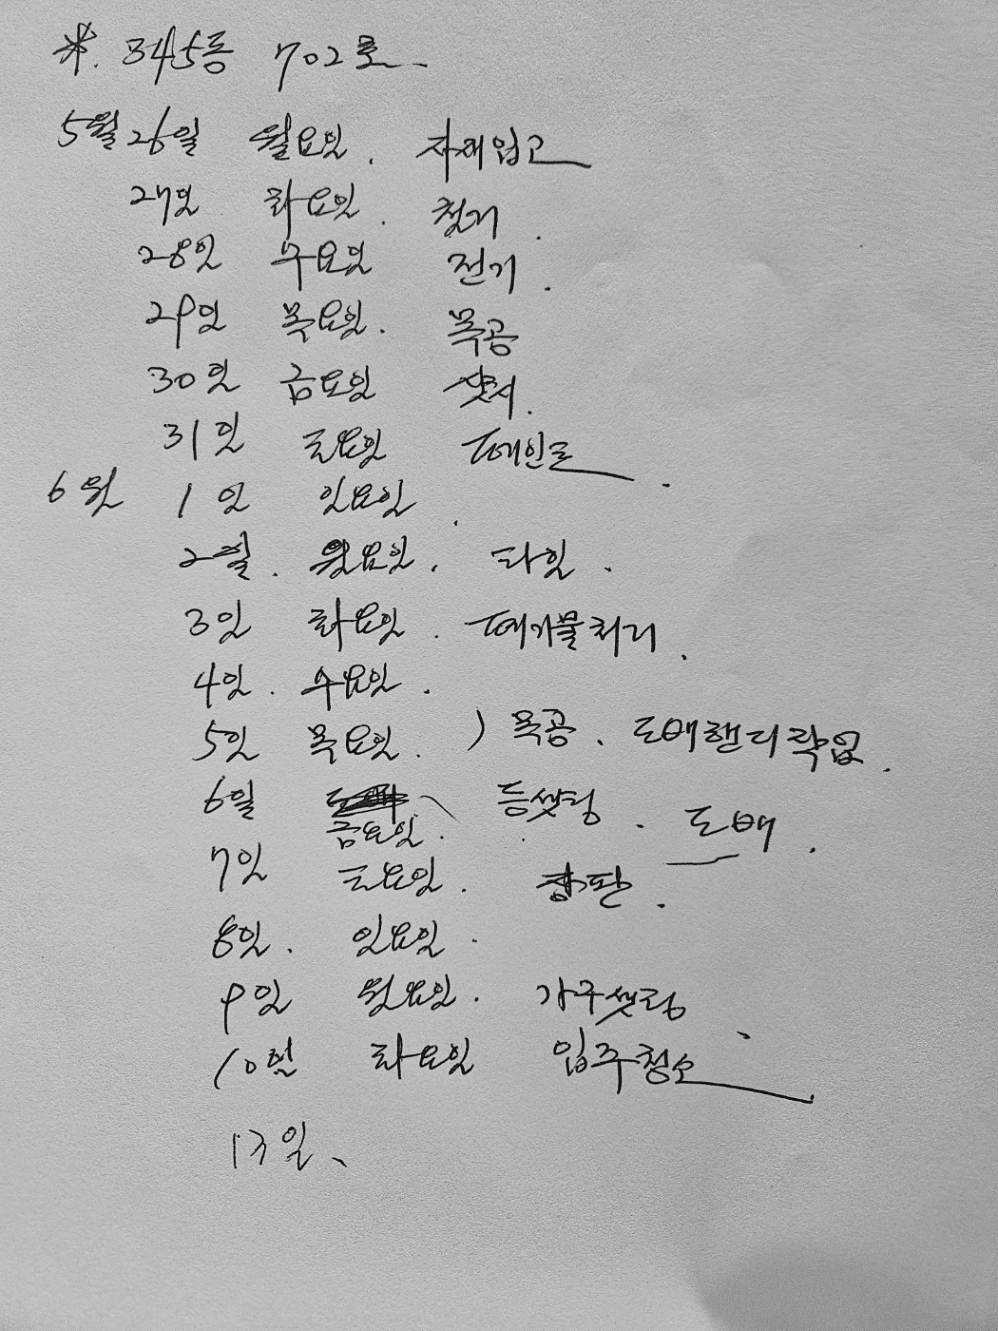 *. 345동 702호
5월 26일 월요일. 자재입고
27일 화요일. 철거.
28일 수요일 전기.
29일 목요일. 목공
30일 금요일 샷시.
31일 토요일 페인트.
6월 1일 일요일.
2일. 월요일. 타일.
3일 화요일. 폐기물처리.
4일. 수요일.
5일 목요일. ) 목공. 도배핸디작업.
6일 금요일. 등셋팅. 도배.
7일 토요일. 장판.
8일. 일요일.
9일 월요일. 가구셋팅.
10일 화요일 입주청소
13일.